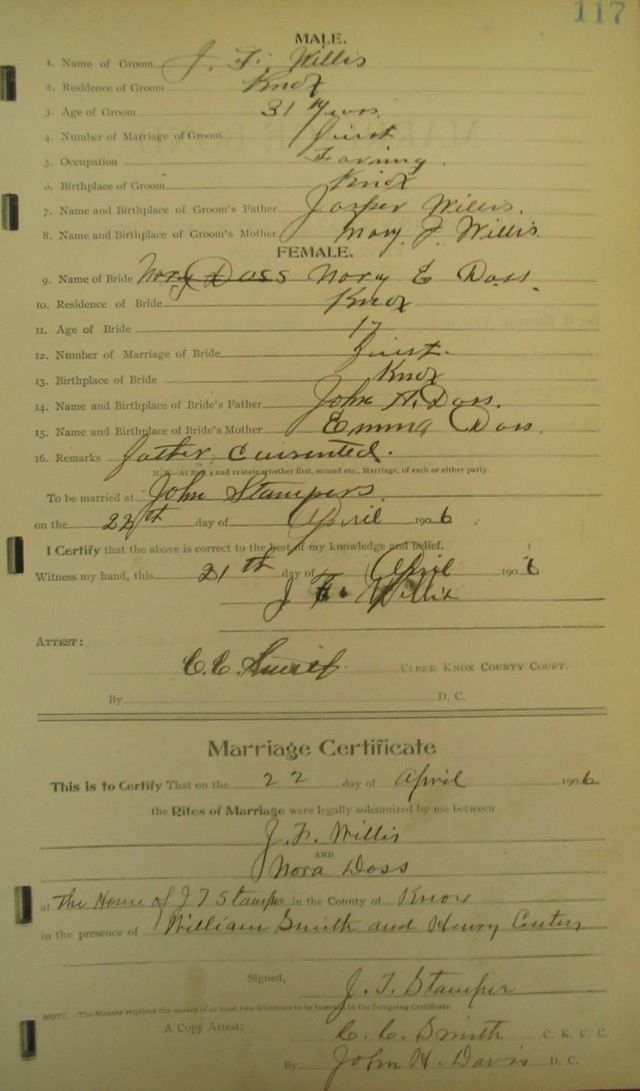 117
MALE.
1. Name of Groom J. F. Willis
2. Residence of Groom Knox
3. Age of Groom 31 Years
4. Number of Marriage of Groom first
5. Occupation Farming
6. Birthplace of Groom Knox
7. Name and Birthplace of Groom's Father Jasper Willis.
8. Name and Birthplace of Groom's Mother Mary. J Willis
FEMALE.
9. Name of Bride Nory Doss Nory E Doss.
10. Residence of Bride Knox
11. Age of Bride 17
12. Number of Marriage of Bride first.
13. Birthplace of Bride Knox
14. Name and Birthplace of Bride's Father John H. Doss.
15. Name and Birthplace of Bride's Mother Emma Doss.
16. Remarks father consented.
N. B.—At Nos. 4 and 12 state whether first, second etc., Marriage, of each or either party.
To be married at John Stampers
on the 22th day of April 1906
I Certify that the above is correct to the best of my knowledge and belief.
Witness my hand, this 21th day of April 1906
J F. Willis
ATTEST:
C. C. Smith CLERK KNOX COUNTY COURT.
By D. C.
Marriage Certificate
This is to Certify That on the 22 day of April 1906
the Rites of Marriage were legally solemnized by me between
J. F. Willis
AND
Nora Doss
at the Home of J T Stamper in the County of Knox
in the presence of William Smith and Henry
Signed, J. T. Stamper
NOTE.—The Statute requires the names of at least two witnesses to be inserted in the foregoing Certificate.
A Copy Attest: C. C. Smith C. K. C. C.
By John H. Davis D. C.